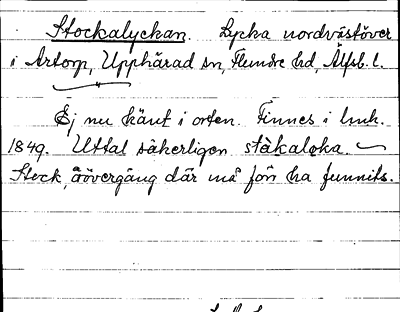 Stockalyckan. Lycka nordväst över
i Artorp, Upphärad sn, Flundre hd, Älfsb. l.
Ej nu känt i orten. Finnes i
1849. Uttal säkerligen ståkaloka.
Stock, åövergång där må förr ha funnits.